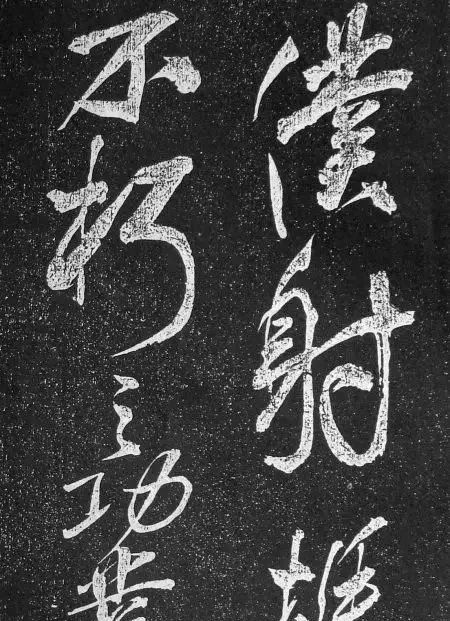 僕射挺
不朽之功業